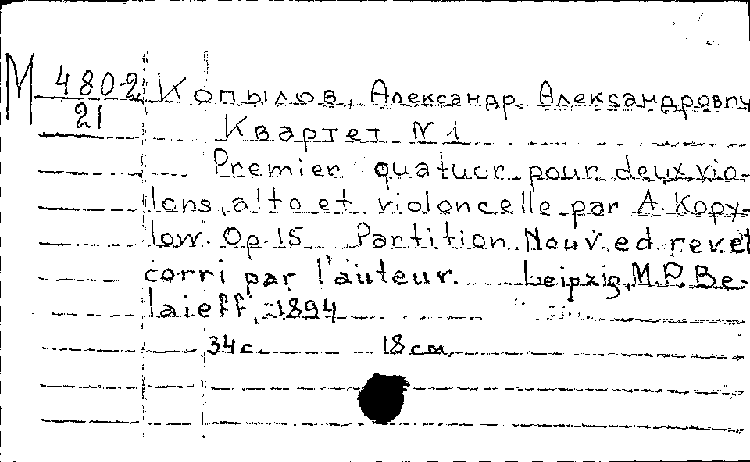 М 4802 Копылов, Александр Александрович
21
Квартет N 1
Premier quatuor pour deux vio-
lons, alto et violoncelle par A. Kopy-
low. Op. 15 Partition. Nouv. ed. rev. et
corri par l'auteur. Leipzig, M.P. Be-
laieff, 1894
34 с. 18 см